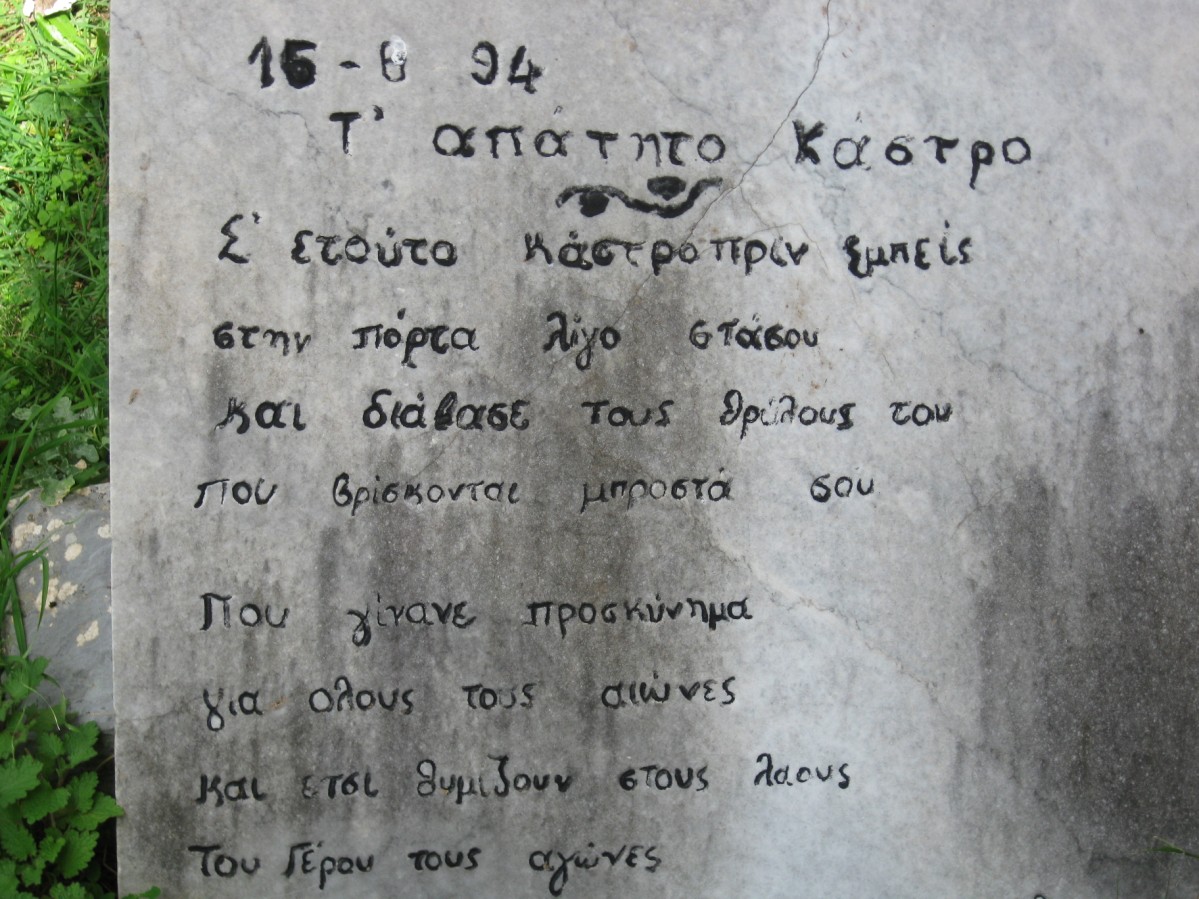 15 - 8 94
Τ' απάτητο Κάστρο
Σ' ετούτο κάστρο πριν εμπείς
στην πόρτα λίγο στάσου
και διάβασε τους θρύλους του
που βρίσκονται μπροστά σου
Που γίνανε προσκύνημα
για ολους τους αιώνες
και ετσι θυμιζουν στους λαους
Του Γέρου τους αγώνες